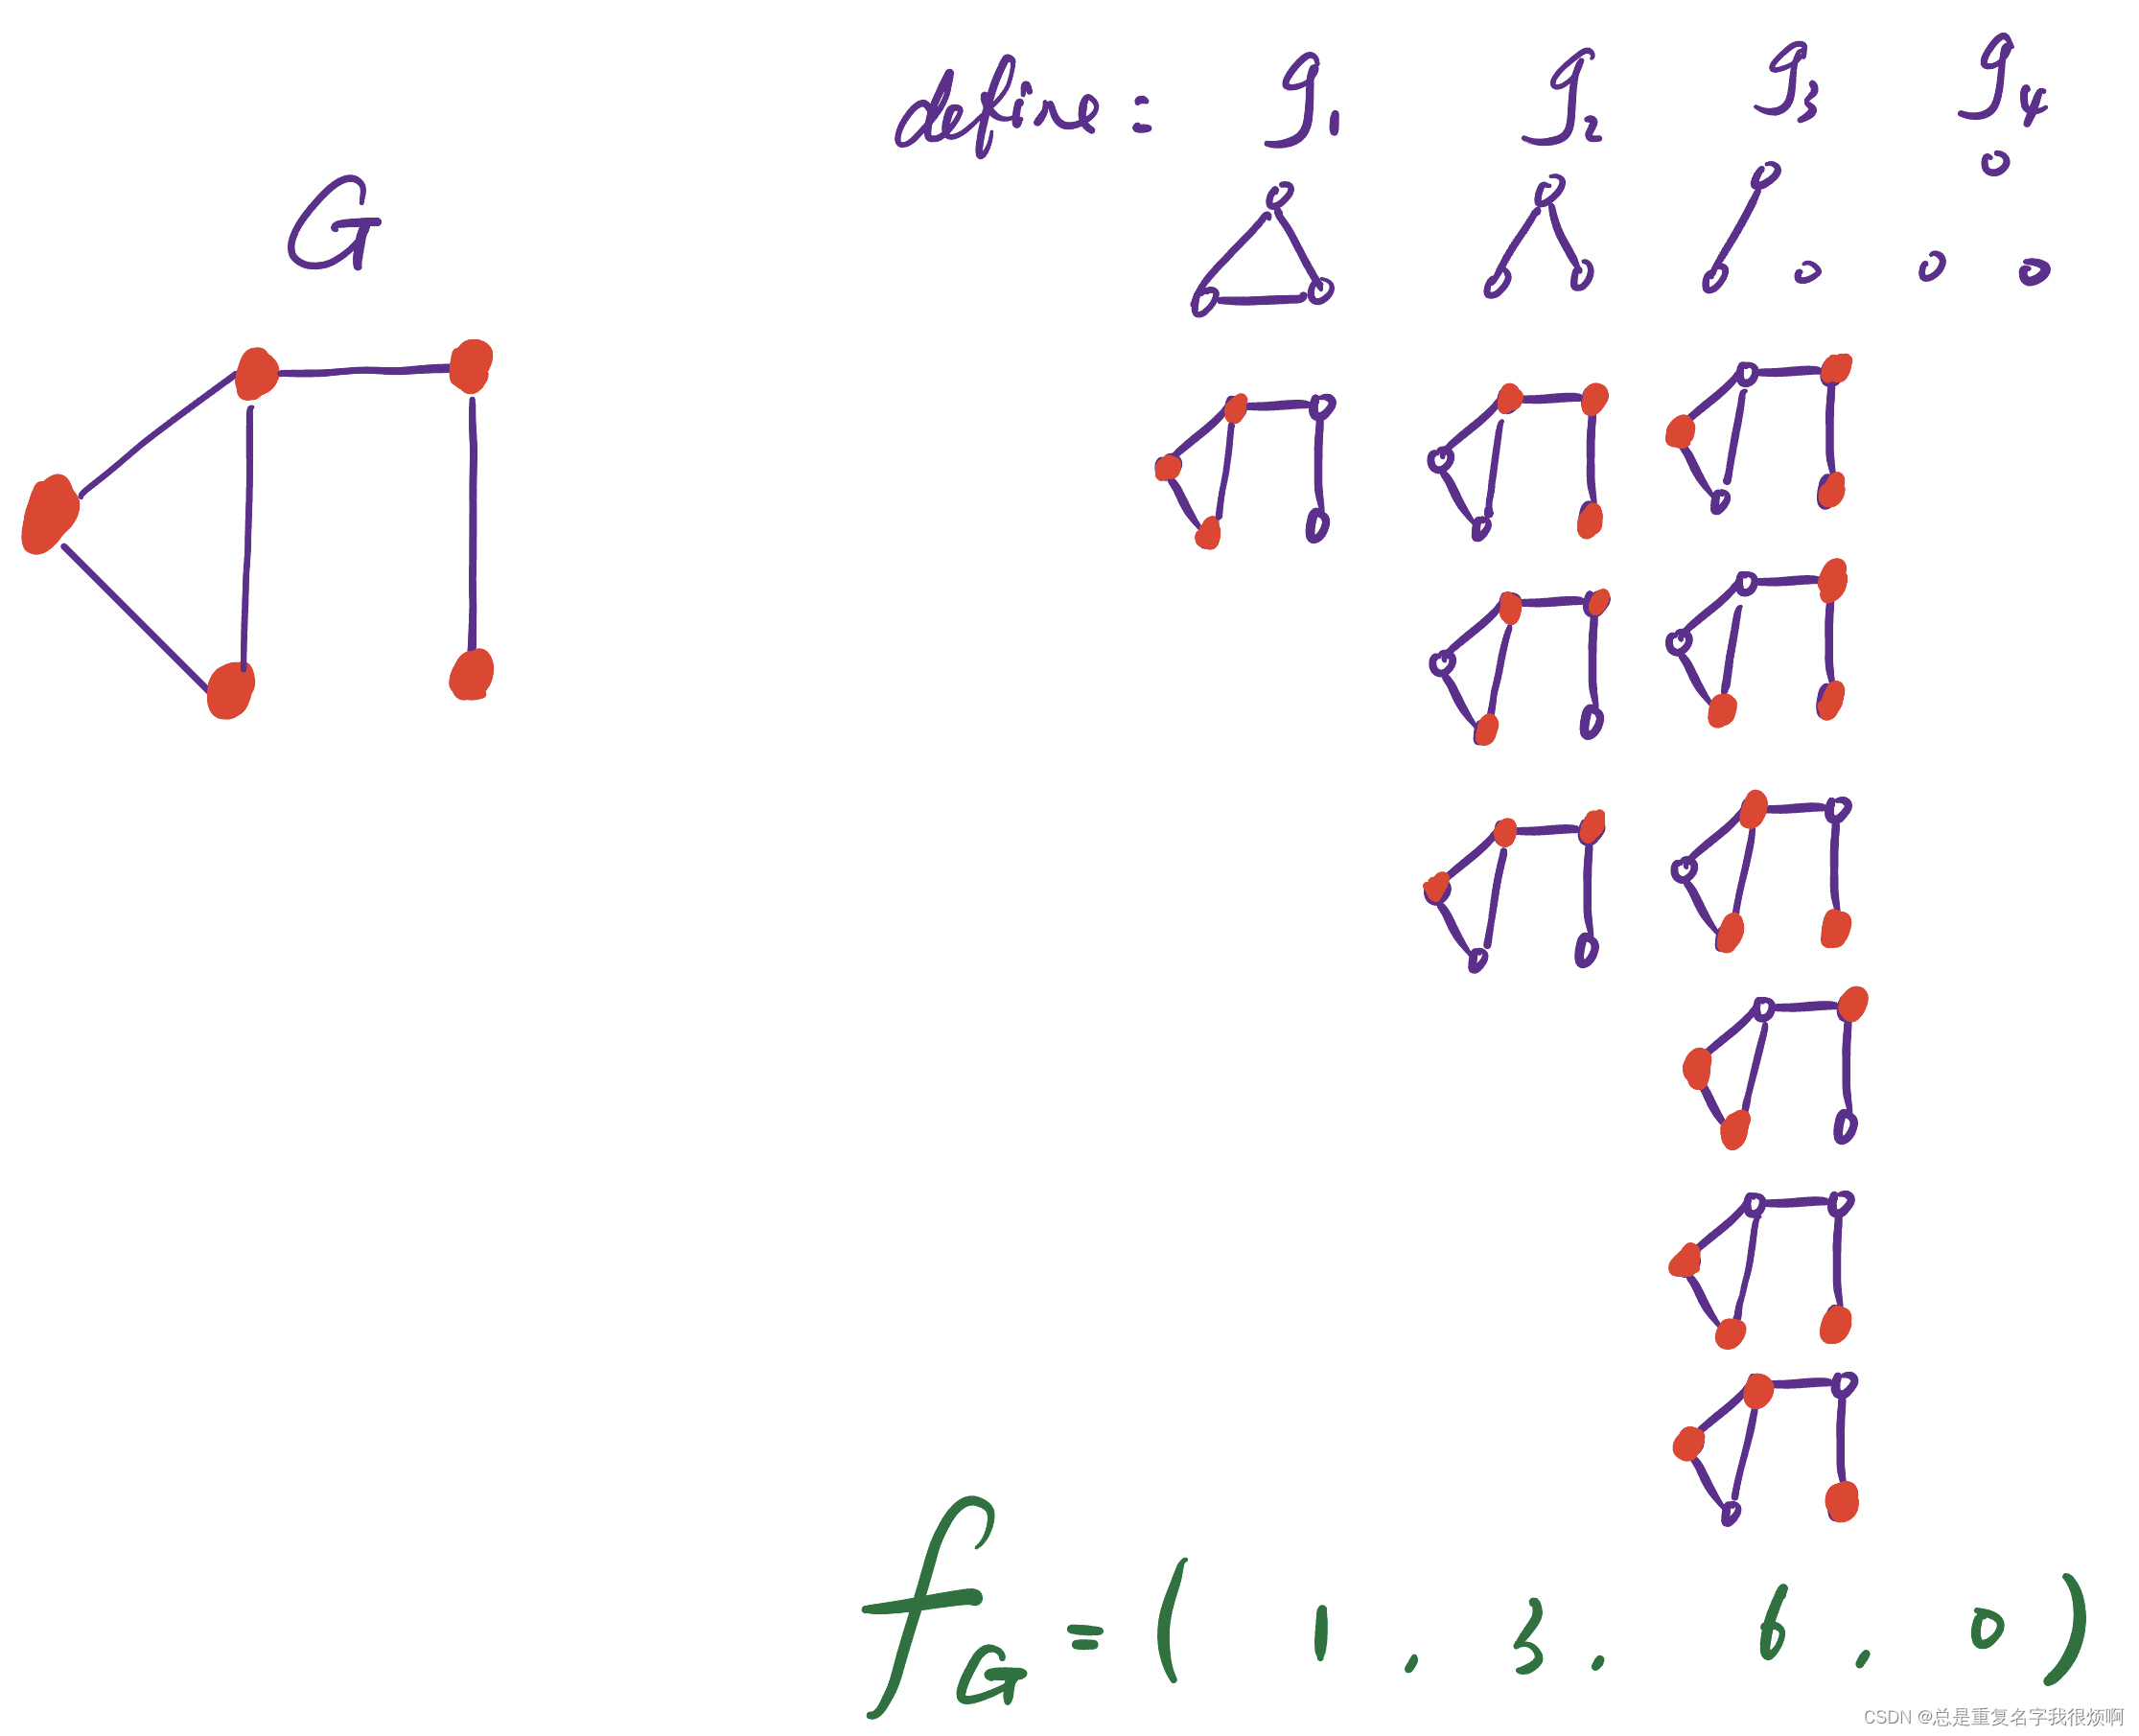 define: g₁ g₂ g₃ g₄
G
f_G = ( 1 , 3 , 6 , 0 )
CSDN @总是重复名字我很烦啊